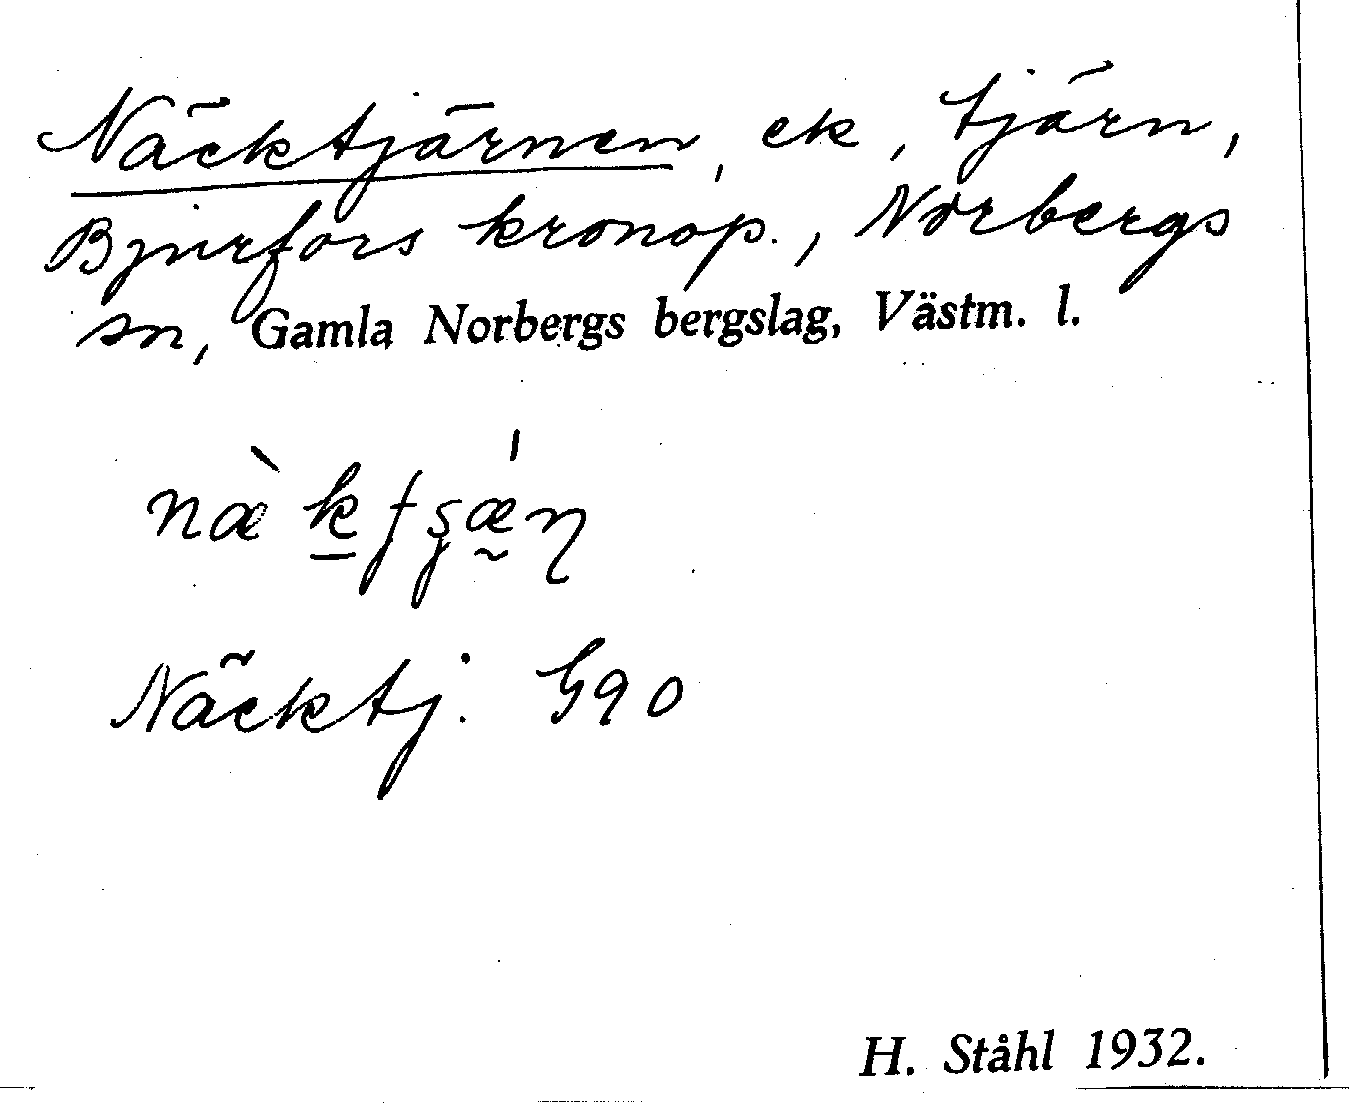 Näcktjärnen, ek, tjärn,
Bjurfors kronop., Norbergs
sn, Gamla Norbergs bergslag, Västm. l.
Näcktj. G90
H. Ståhl 1932.